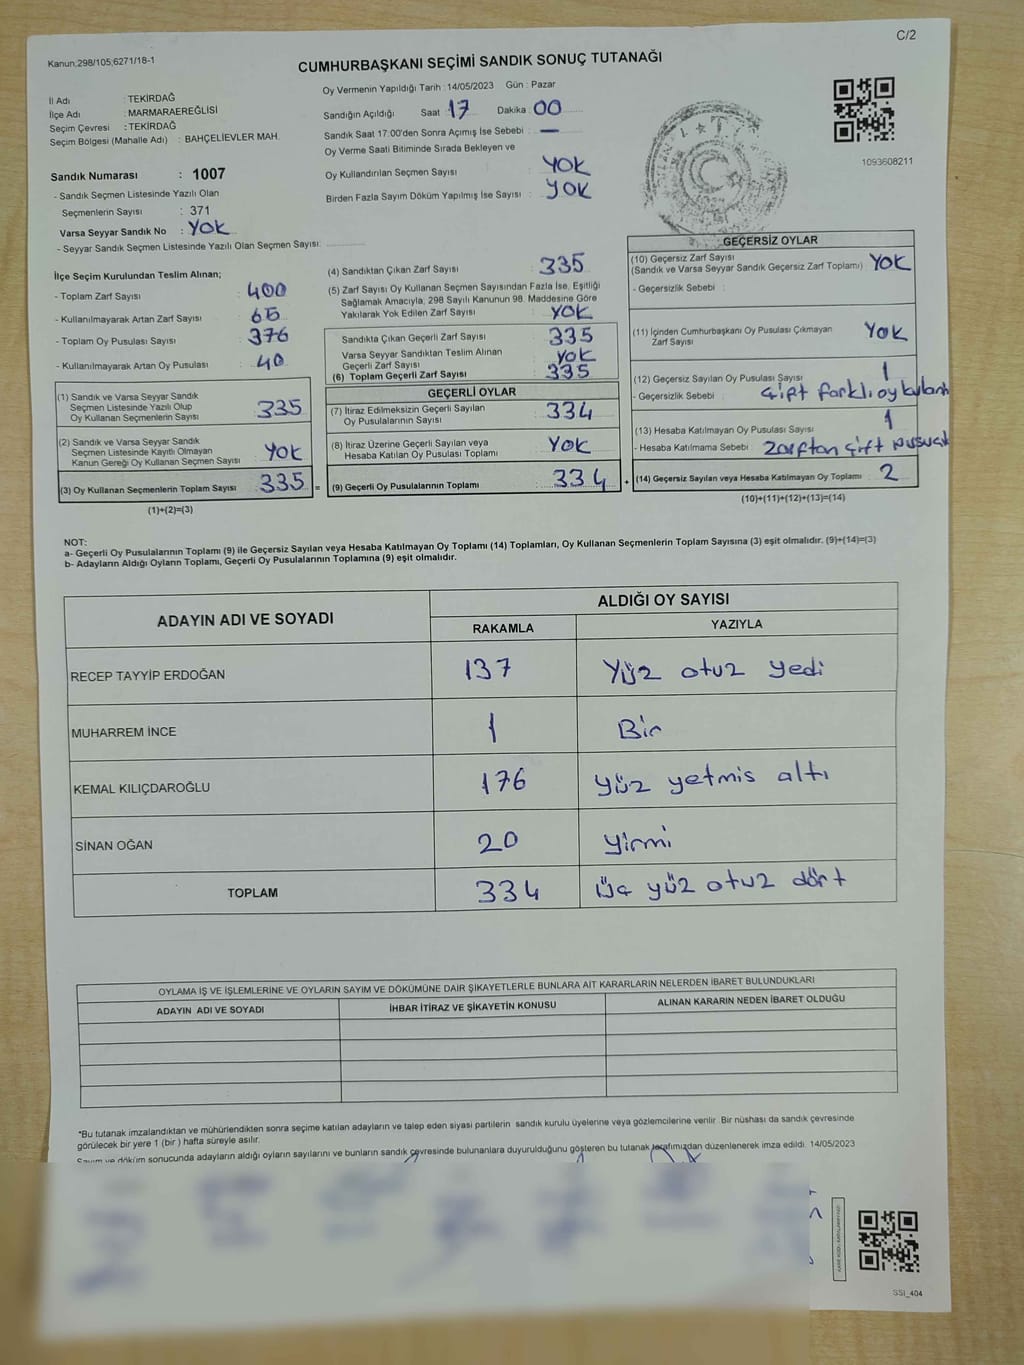 C/2
Kanun,298/105,6271/18-1
CUMHURBAŞKANI SEÇİMİ SANDIK SONUÇ TUTANAĞI
İl Adı : TEKİRDAĞ
İlçe Adı : MARMARAEREĞLİSİ
Seçim Çevresi : TEKİRDAĞ
Seçim Bölgesi (Mahalle Adı) : BAHÇELİEVLER MAH.
Sandık Numarası : 1007
- Sandık Seçmen Listesinde Yazılı Olan
Seçmenlerin Sayısı : 371
Varsa Seyyar Sandık No : YOK
- Seyyar Sandık Seçmen Listesinde Yazılı Olan Seçmen Sayısı:
Oy Vermenin Yapıldığı Tarih : 14/05/2023 Gün : Pazar
Sandığın Açıldığı Saat 17 Dakika : 00
Sandık Saat 17:00'den Sonra Açımış İse Sebebi : —
Oy Verme Saati Bitiminde Sırada Bekleyen ve
Oy Kullandırılan Seçmen Sayısı : YOK
Birden Fazla Sayım Döküm Yapılmış İse Sayısı : YOK
1093608211
İlçe Seçim Kurulundan Teslim Alınan;
- Toplam Zarf Sayısı : 400
- Kullanılmayarak Artan Zarf Sayısı : 65
- Toplam Oy Pusulası Sayısı : 376
- Kullanılmayarak Artan Oy Pusulası : 40
(1) Sandık ve Varsa Seyyar Sandık
Seçmen Listesinde Yazılı Olup
Oy Kullanan Seçmenlerin Sayısı : 335
(2) Sandık ve Varsa Seyyar Sandık
Seçmen Listesinde Kayıtlı Olmayan
Kanun Gereği Oy Kullanan Seçmen Sayısı : YOK
(3) Oy Kullanan Seçmenlerin Toplam Sayısı : 335 =
(1)+(2)=(3)
(4) Sandıktan Çıkan Zarf Sayısı : 335
(5) Zarf Sayısı Oy Kullanan Seçmen Sayısından Fazla İse, Eşitliği
Sağlamak Amacıyla, 298 Sayılı Kanunun 98. Maddesine Göre
Yakılarak Yok Edilen Zarf Sayısı : YOK
Sandıkta Çıkan Geçerli Zarf Sayısı : 335
Varsa Seyyar Sandıktan Teslim Alınan
Geçerli Zarf Sayısı : YOK
(6) Toplam Geçerli Zarf Sayısı : 335
GEÇERLİ OYLAR
(7) İtiraz Edilmeksizin Geçerli Sayılan
Oy Pusulalarının Sayısı : 334
(8) İtiraz Üzerine Geçerli Sayılan veya
Hesaba Katılan Oy Pusulası Toplamı : YOK
(9) Geçerli Oy Pusulalarının Toplamı : 334 +
GEÇERSİZ OYLAR
(10) Geçersiz Zarf Sayısı
(Sandık ve Varsa Seyyar Sandık Geçersiz Zarf Toplamı) : YOK
- Geçersizlik Sebebi :
(11) İçinden Cumhurbaşkanı Oy Pusulası Çıkmayan
Zarf Sayısı : YOK
(12) Geçersiz Sayılan Oy Pusulası Sayısı : 1
- Geçersizlik Sebebi : Çift farklı oy
(13) Hesaba Katılmayan Oy Pusulası Sayısı : 1
- Hesaba Katılmama Sebebi : Zarftan çift
(14) Geçersiz Sayılan veya Hesaba Katılmayan Oy Toplamı : 2
(10)+(11)+(12)+(13)=(14)
NOT:
a- Geçerli Oy Pusulalarının Toplamı (9) ile Geçersiz Sayılan veya Hesaba Katılmayan Oy Toplamı (14) Toplamları, Oy Kullanan Seçmenlerin Toplam Sayısına (3) eşit olmalıdır. (9)+(14)=(3)
b- Adayların Aldığı Oyların Toplamı, Geçerli Oy Pusulalarının Toplamına (9) eşit olmalıdır.
ADAYIN ADI VE SOYADI ALDIĞI OY SAYISI
RAKAMLA YAZIYLA
RECEP TAYYİP ERDOĞAN 137 Yüz otuz yedi
MUHARREM İNCE 1 Bir
KEMAL KILIÇDAROĞLU 176 yüz yetmis altı
SİNAN OĞAN 20 yirmi
TOPLAM 334 üç yüz otuz dört
OYLAMA İŞ VE İŞLEMLERİNE VE OYLARIN SAYIM VE DÖKÜMÜNE DAİR ŞİKAYETLERLE BUNLARA AİT KARARLARIN NELERDEN İBARET BULUNDUKLARI
ADAYIN ADI VE SOYADI İHBAR İTİRAZ VE ŞİKAYETİN KONUSU ALINAN KARARIN NEDEN İBARET OLDUĞU
*Bu tutanak imzalandıktan ve mühürlendikten sonra seçime katılan adayların ve talep eden siyasi partilerin sandık kurulu üyelerine veya gözlemcilerine verilir. Bir nüshası da sandık çevresinde
görülecek bir yere 1 (bir) hafta süreyle asılır.
Sayım ve döküm sonucunda adayların aldığı oyların sayılarını ve bunların sandık çevresinde bulunanlara duyurulduğunu gösteren bu tutanak tarafımızdan düzenlenerek imza edildi. 14/05/2023
SSI_404